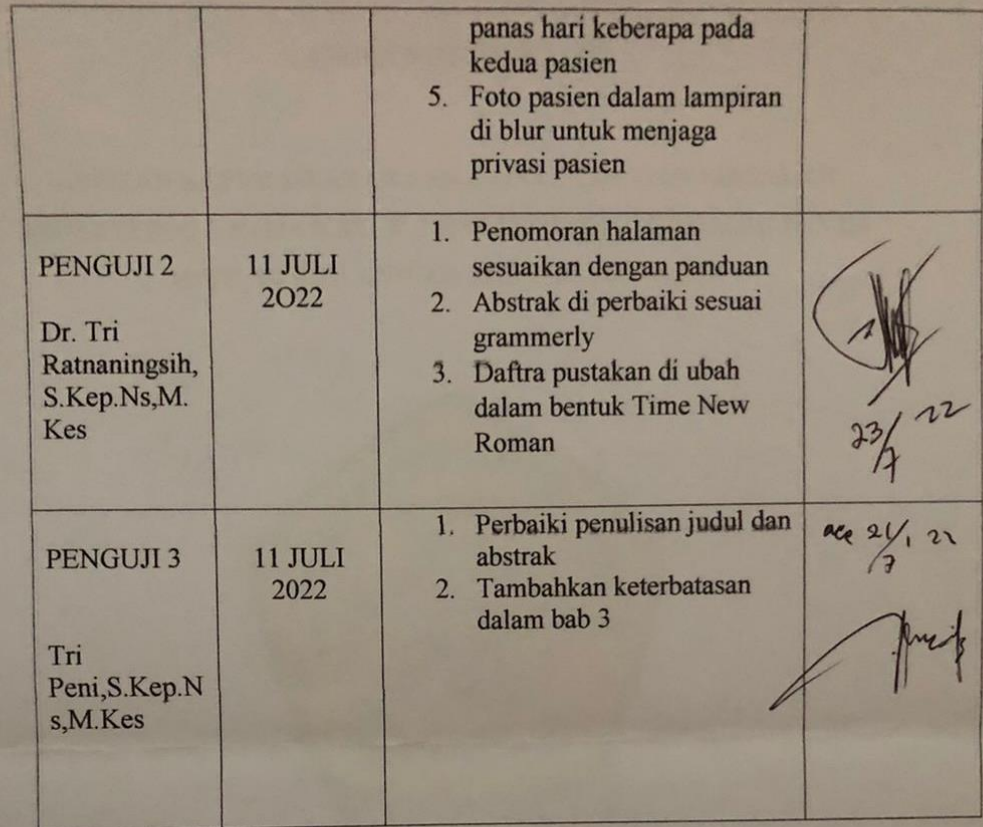 panas hari keberapa pada
kedua pasien
5. Foto pasien dalam lampiran
di blur untuk menjaga
privasi pasien
PENGUJI 2
Dr. Tri
Ratnaningsih,
S.Kep.Ns,M.
Kes
11 JULI
2O22
1. Penomoran halaman
sesuaikan dengan panduan
2. Abstrak di perbaiki sesuai
grammerly
3. Daftra pustakan di ubah
dalam bentuk Time New
Roman
23/7 22
PENGUJI 3
Tri
Peni,S.Kep.N
s,M.Kes
11 JULI
2022
1. Perbaiki penulisan judul dan
abstrak
2. Tambahkan keterbatasan
dalam bab 3
acc 21/7 22